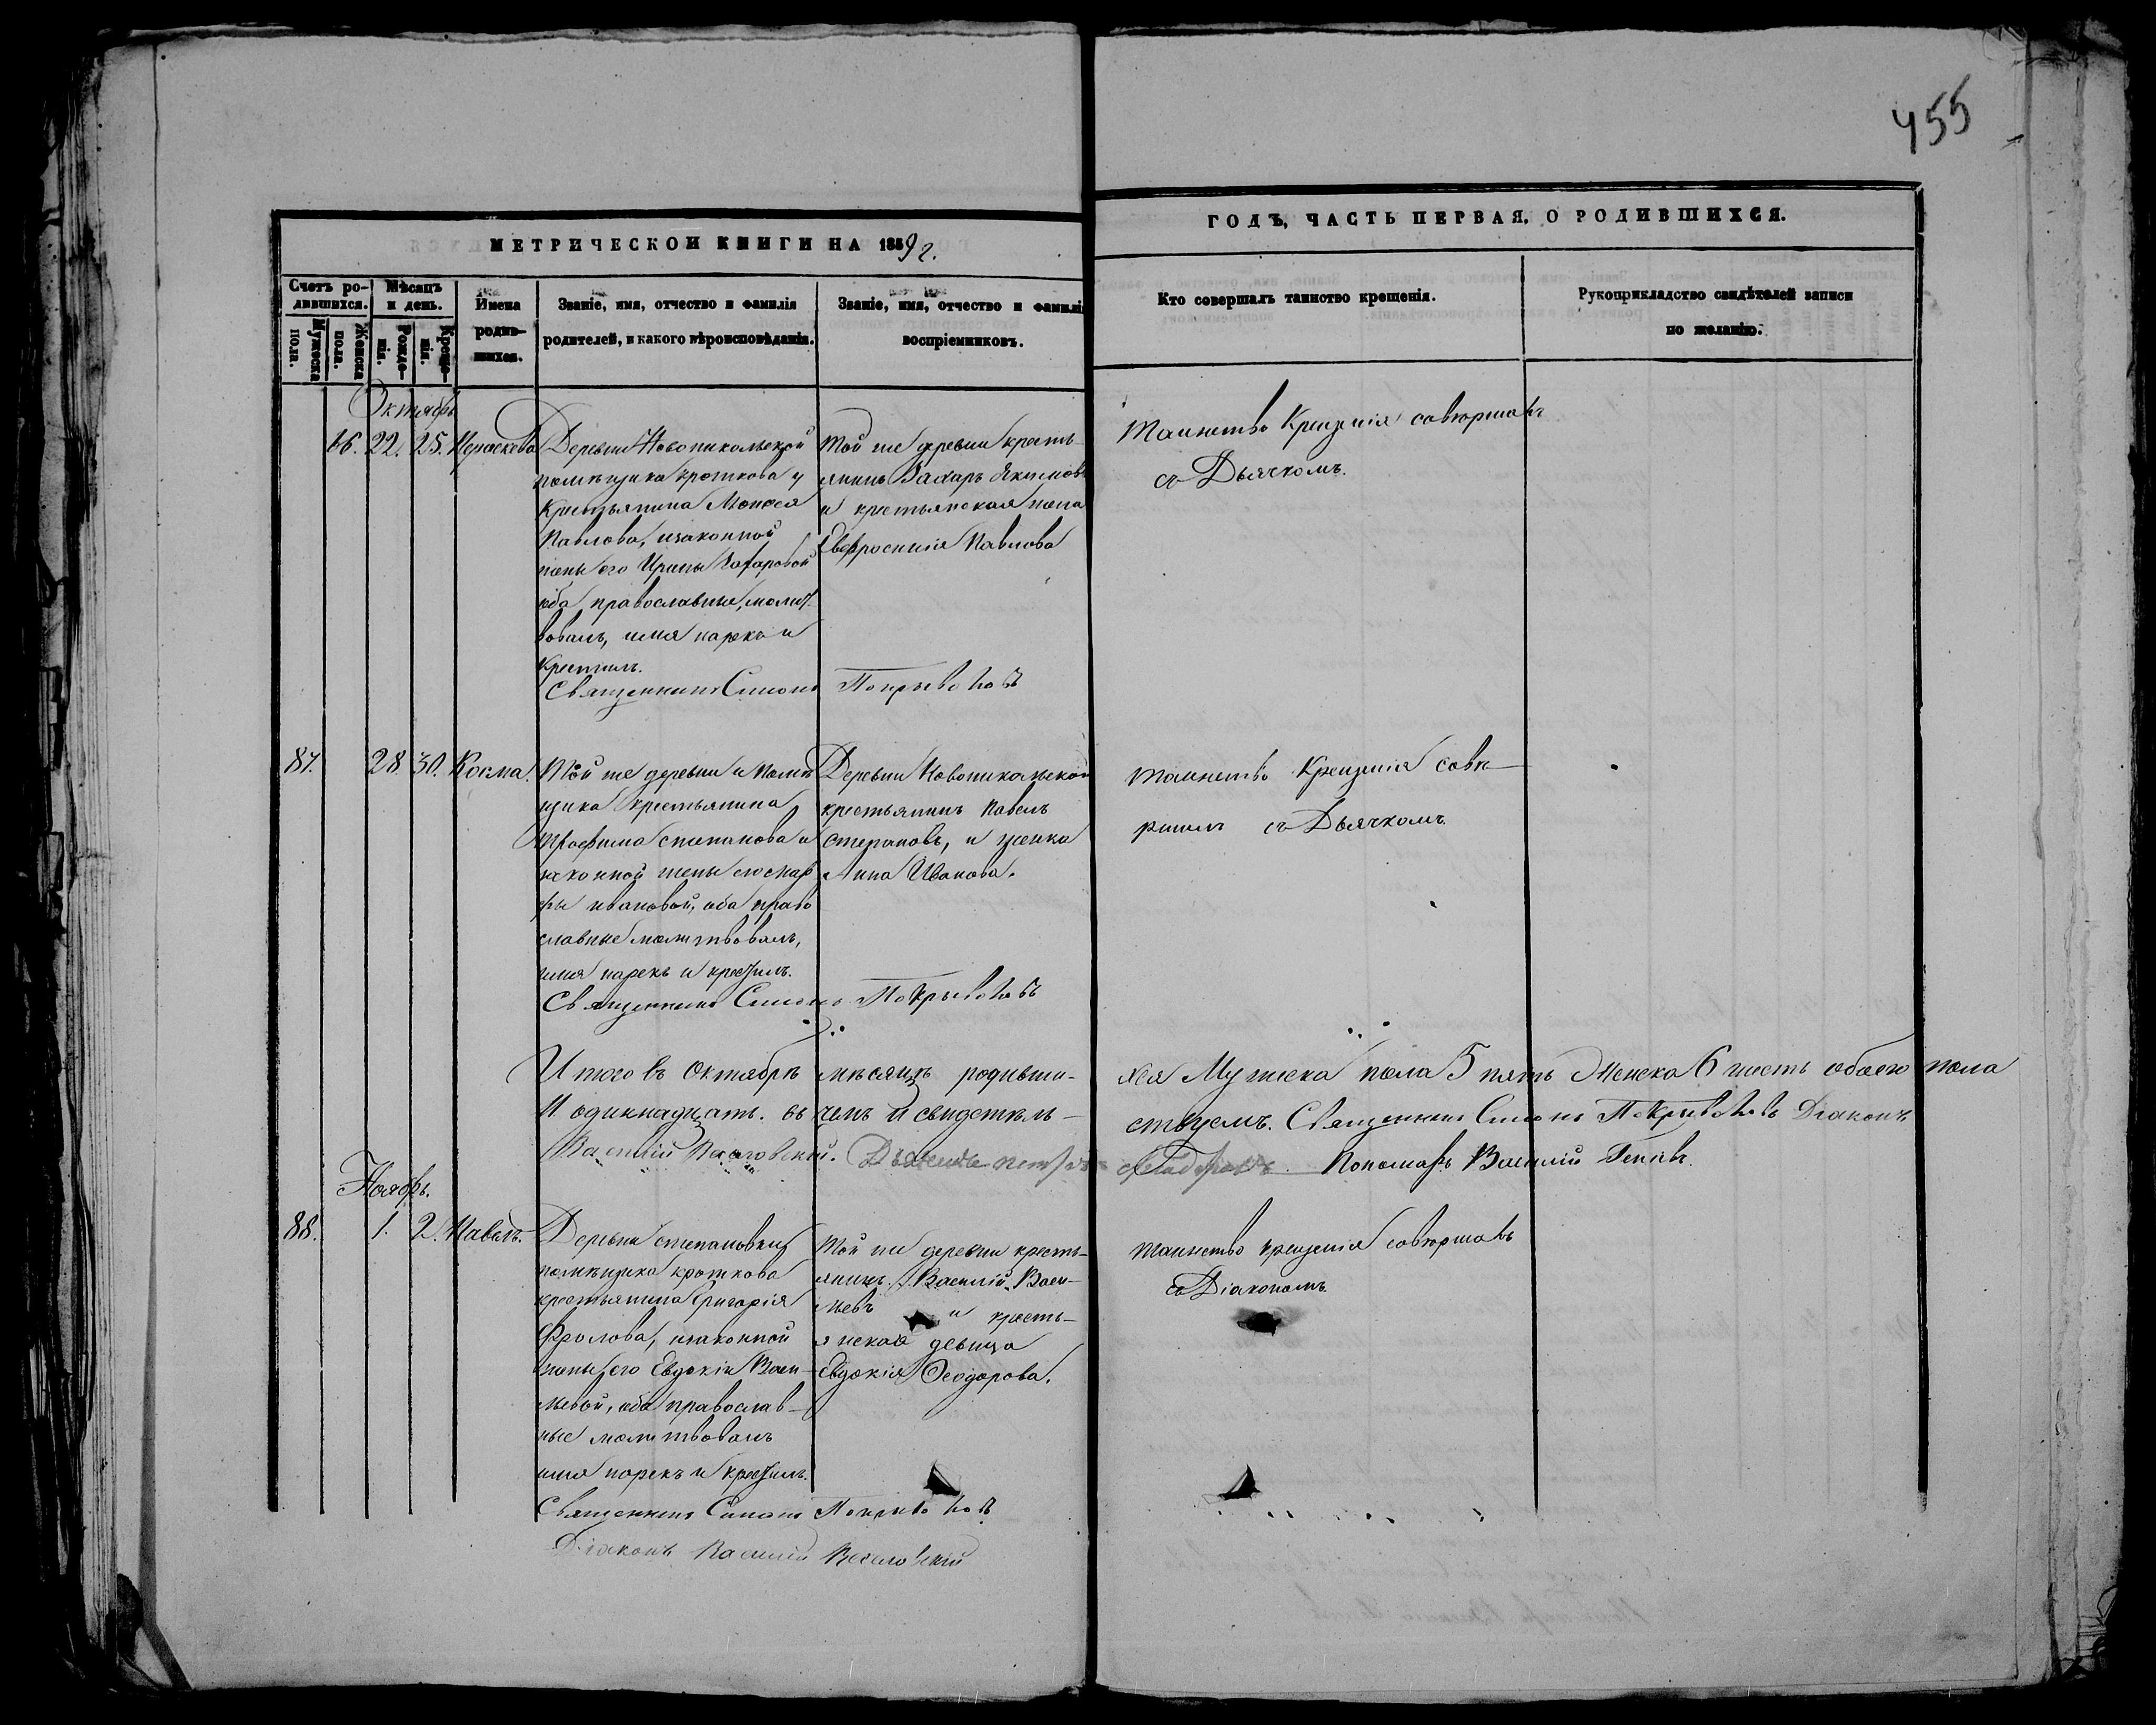 455
МЕТРИЧЕСКОЙ КНИГИ НА 1859 г.
ГОДЪ, ЧАСТЬ ПЕРВАЯ, О РОДИВШИХСЯ.
Счетъ ро-
дившихся.
Мужеска
пола.
Женска
пола.
Мѣсяцъ
и день.
Рожде-
нія.
Креще-
нія.
Имена
родив-
шихся.
Званіе, имя, отчество и фамилія
родителей, и какого вѣроисповѣданія.
Званіе, имя, отчество и фамилія
воспріемниковъ.
Кто совершалъ таинство крещенія.
Рукоприкладство свидѣтелей записи
по желанію.
Октябрь
46. 22. 25. Пераскева
Деревни Новоникольской
помѣщика Кроткова
Крестьянина Моисея
Павлова, изаконной
жены его Ирины Захаровой
оба православные, молит
вовалъ, имя нарекъ и
Крестилъ.
Священникъ Симонъ Покрывовъ
Той же деревни кресть-
янинъ Захаръ Якимовъ
и крестьянская жена
Евфросинія Павлова
Таинство Крещенія совершалъ
съ Дьячкомъ.
87. 28. 30. Косма.
Той же деревни и Помѣ
щика крестьянина
Трофима Степанова и
законной жены его Мар
фы Ивановой, оба право
славные молитвовалъ,
имя нарекъ и крестилъ.
Священникъ Симонъ
Деревни Новоникольской
крестьянинъ Павелъ
Степановъ, и женка
Анна Иванова.
Таинство Крещенія сове-
ршилъ съ Дьячкомъ.
Итого въ Октябрѣ мѣсяцѣ родивши-
хся Мужеска пола 5 пять Женска 6 шесть обоего пола
11 одиннадцать. въ чемъ и свидѣтель-
ствуемъ. Священникъ Симонъ Діаконъ
Василій Веселовскій. Дьячекъ Петръ Пономарь Василій
Ноябрь.
88. 1. 2. Павелъ.
Деревни Степановки
помѣщика Кроткова
крестьянина Григорія
Фролова, изаконной
жены его Евдокіи Васи-
льевой, оба православ-
ные молитвовалъ
имя нарекъ и крестилъ.
Священникъ Симонъ
Діаконъ Василій Веселовскій
Той же деревни кресть-
янинъ Василій Васи-
льевъ и кресть-
янская девица
Евдокія Ѳеодорова.
Таинство крещенія совершалъ
съ Діакономъ